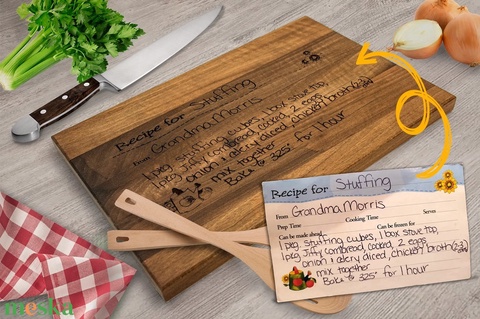 Recipe for Stuffing
From Grandma Morris
1 pkg stuffing cubes, 1 box stove top,
1 pkg Jiffy cornbread, cooked, 2 eggs
onion & celery diced, chicken broth
mix together
Bake to 325° for 1 hour
Recipe for Stuffing
From Grandma Morris
Prep Time Cooking Time Serves
Can be made ahead Can be frozen for
1 pkg stuffing cubes, 1 box stove top,
1 pkg Jiffy cornbread, cooked, 2 eggs
onion & celery diced, chicken broth
mix together
Bake to 325° for 1 hour
meska